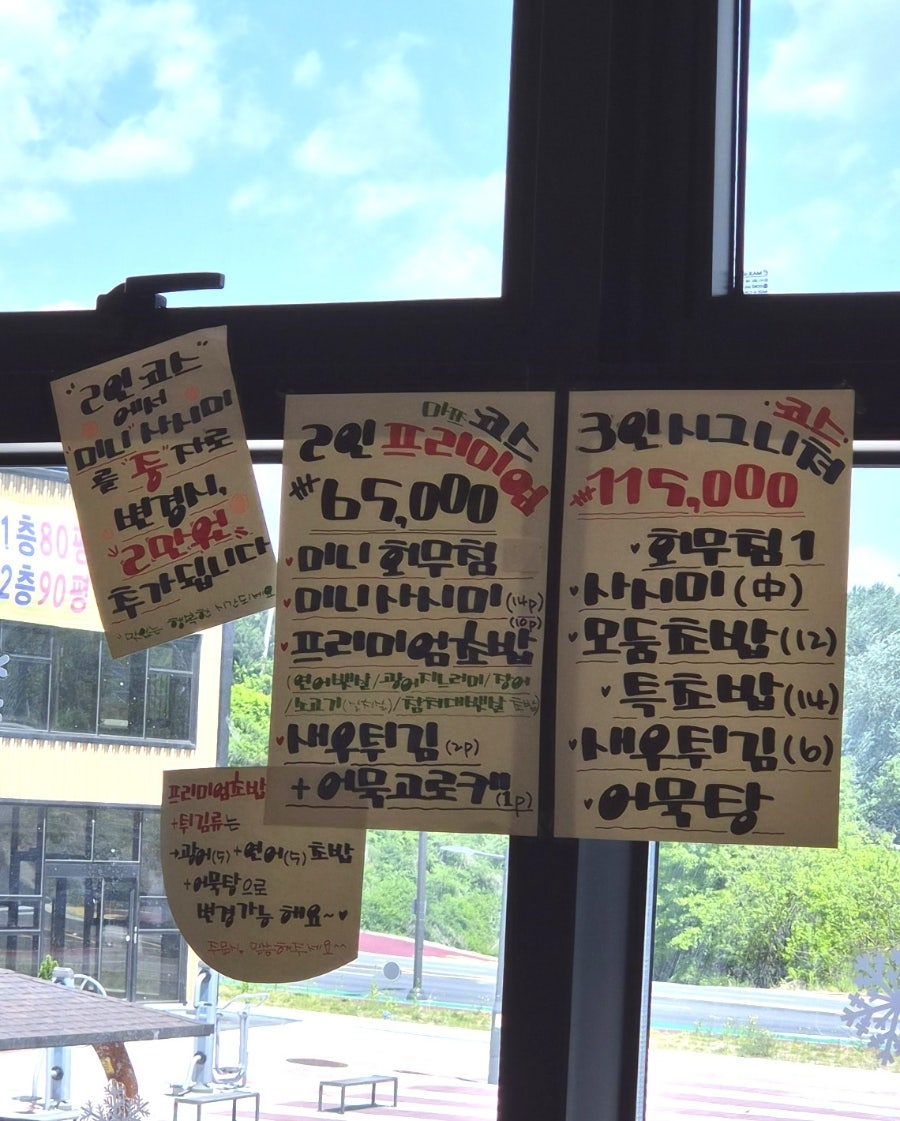 "2인 코스"
에서
"미니" 사시미
를 "중"자로
변경시,
"2만원"
추가됩니다
맛있는 행복한
마프 코스
2인 프리미엄
₩65,000
미니 회무침
미니사시미 (14p)
프리미엄초밥 (10p)
(연어뱃살/광어지느러미/장어
/소고기/참치대뱃살 초밥)
새우튀김 (2p)
+ 어묵고로케 (1p)
코스
3인 시그니처
₩115,000
회무침1
사시미(中)
모둠초밥(12)
특초밥(14)
새우튀김(6)
어묵탕
프리미엄초밥
+튀김류는
→광어(5)+연어(5)초밥
+어묵탕으로
변경가능해요~♥
주문시 말씀해주세요~
1층80평
2층90평